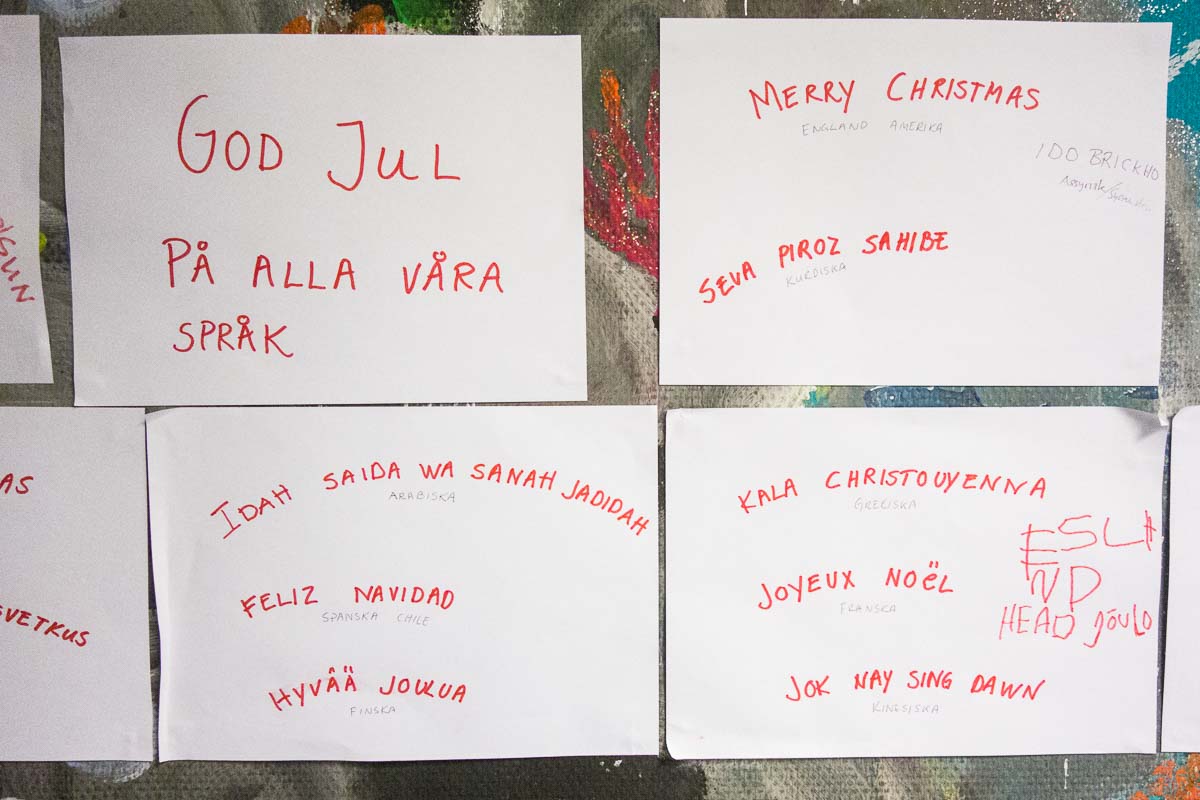 GOD JUL
PÅ ALLA VÅRA
SPRÅK
MERRY CHRISTMAS
ENGLAND AMERIKA
IDO BRICKHO
SEVA PIROZ SAHIBE
KURDISKA
AS
SVETKUS
IDAH SAIDA WA SANAH JADIDAH
ARABISKA
FELIZ NAVIDAD
SPANSKA CHILE
HYVÄÄ JOULUA
FINSKA
KALA CHRISTOUYENNA
GREKISKA
ESLA
ND
HEAD JÕULD
JOYEUX NOËL
FRANSKA
JOK NAY SING DAWN
KINESISKA